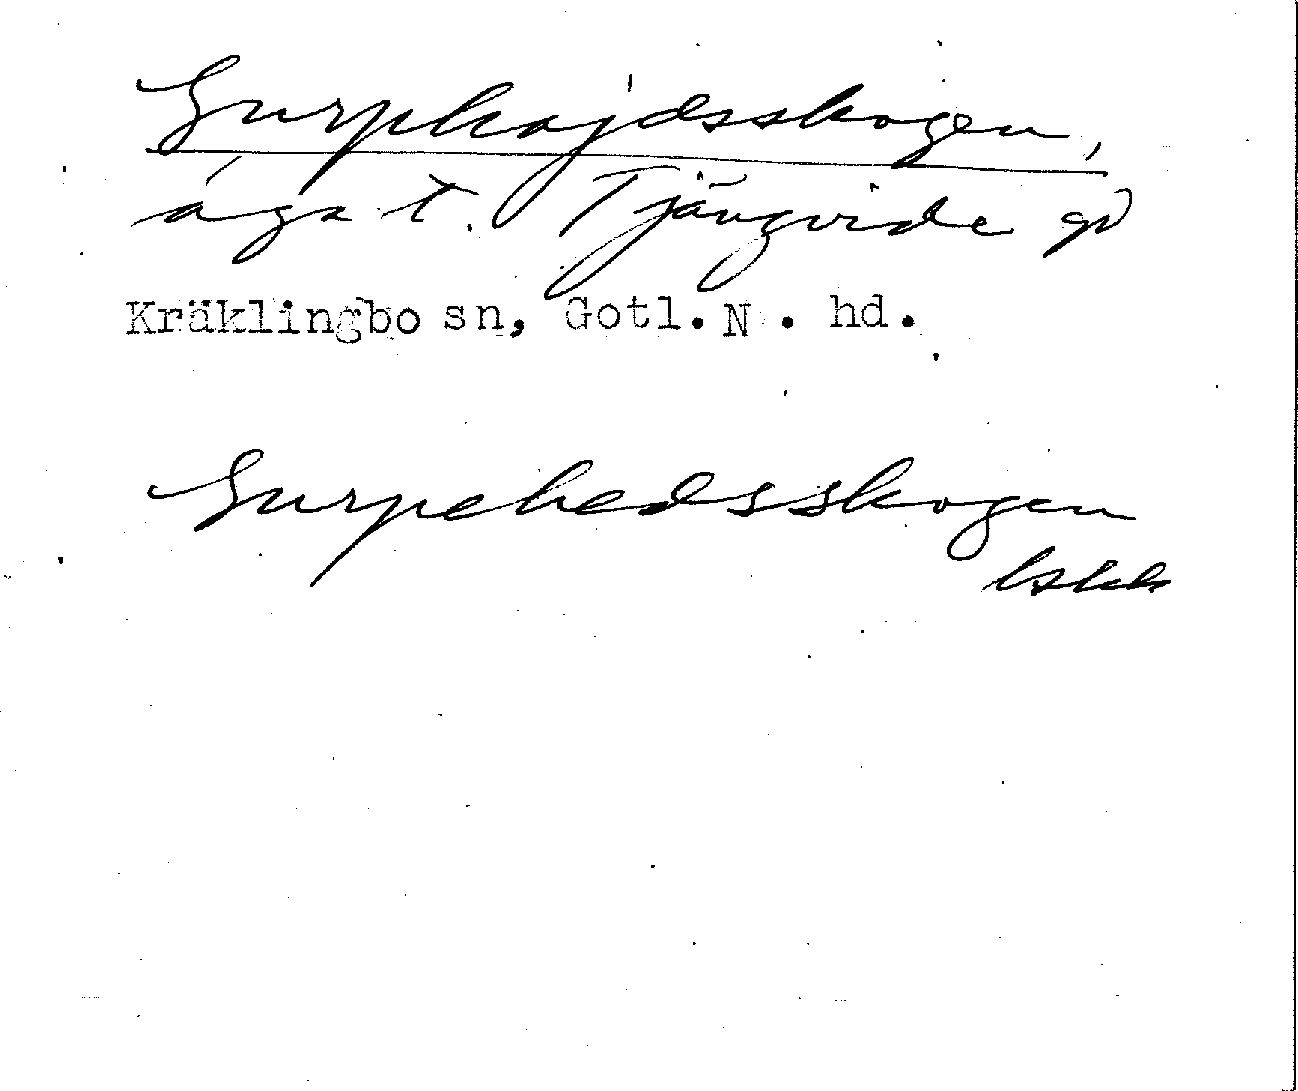 Gurphojdsskogen,
äga t. Tjängvide gd
Kräklingbo sn, Gotl.N . hd.
Gurpehedsskogen